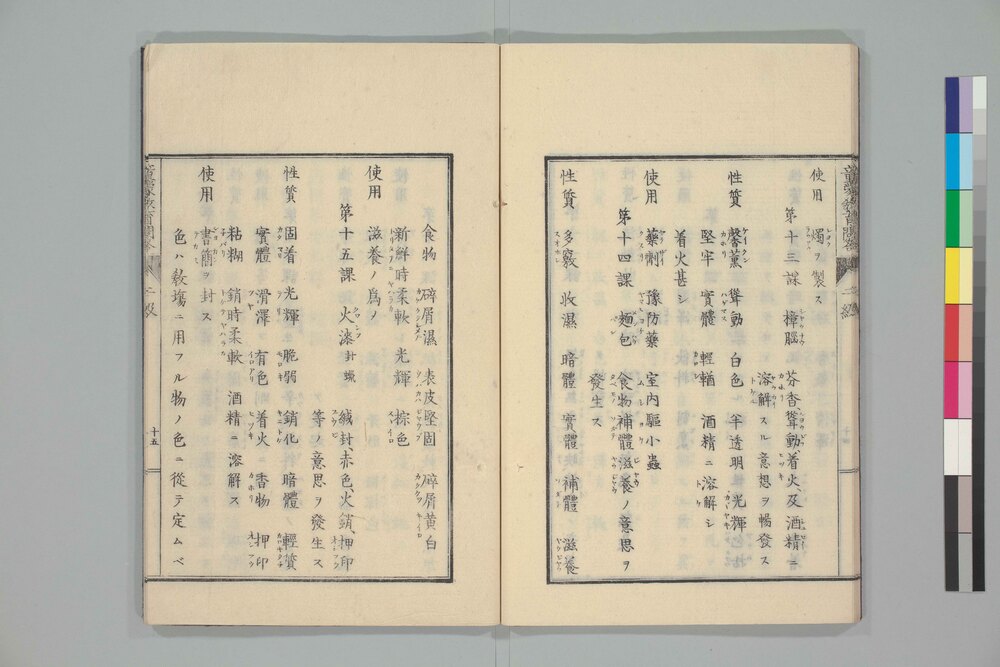 使用 燭ヲ製ス
第十三課 樟腦 芬香聳動、着火及酒精ニ
溶解スル意想ヲ暢發ス
性質 馨薫 聳動 白色 半透明 光輝
堅牢 實體 輕 酒精ニ溶解シ
着火甚シ
使用 藥劑 豫防藥 室内驅小蟲
第十四課 麵包 食物補體滋養ノ意思ヲ
發生ス
性質 多竅 收濕 暗體 實體 補體 滋養
食物 碎屑濕 表皮堅固 碎屑黄白
新鮮時柔軟 光輝 棕色
使用 滋養ノ爲ノ
第十五課 火漆 封蠟 緘封、赤色、火銷、押印
等ノ意思ヲ發生ス
性質 固着 光輝 脆弱 銷化 暗體 輕質
實體 滑澤 有色 着火 香物 押印
粘糊 銷時柔軟 酒精ニ溶解ス
使用 書簡ヲ封ス
色ハ數塲ニ用フル物ノ色ニ從テ定ムベ
二級
十五